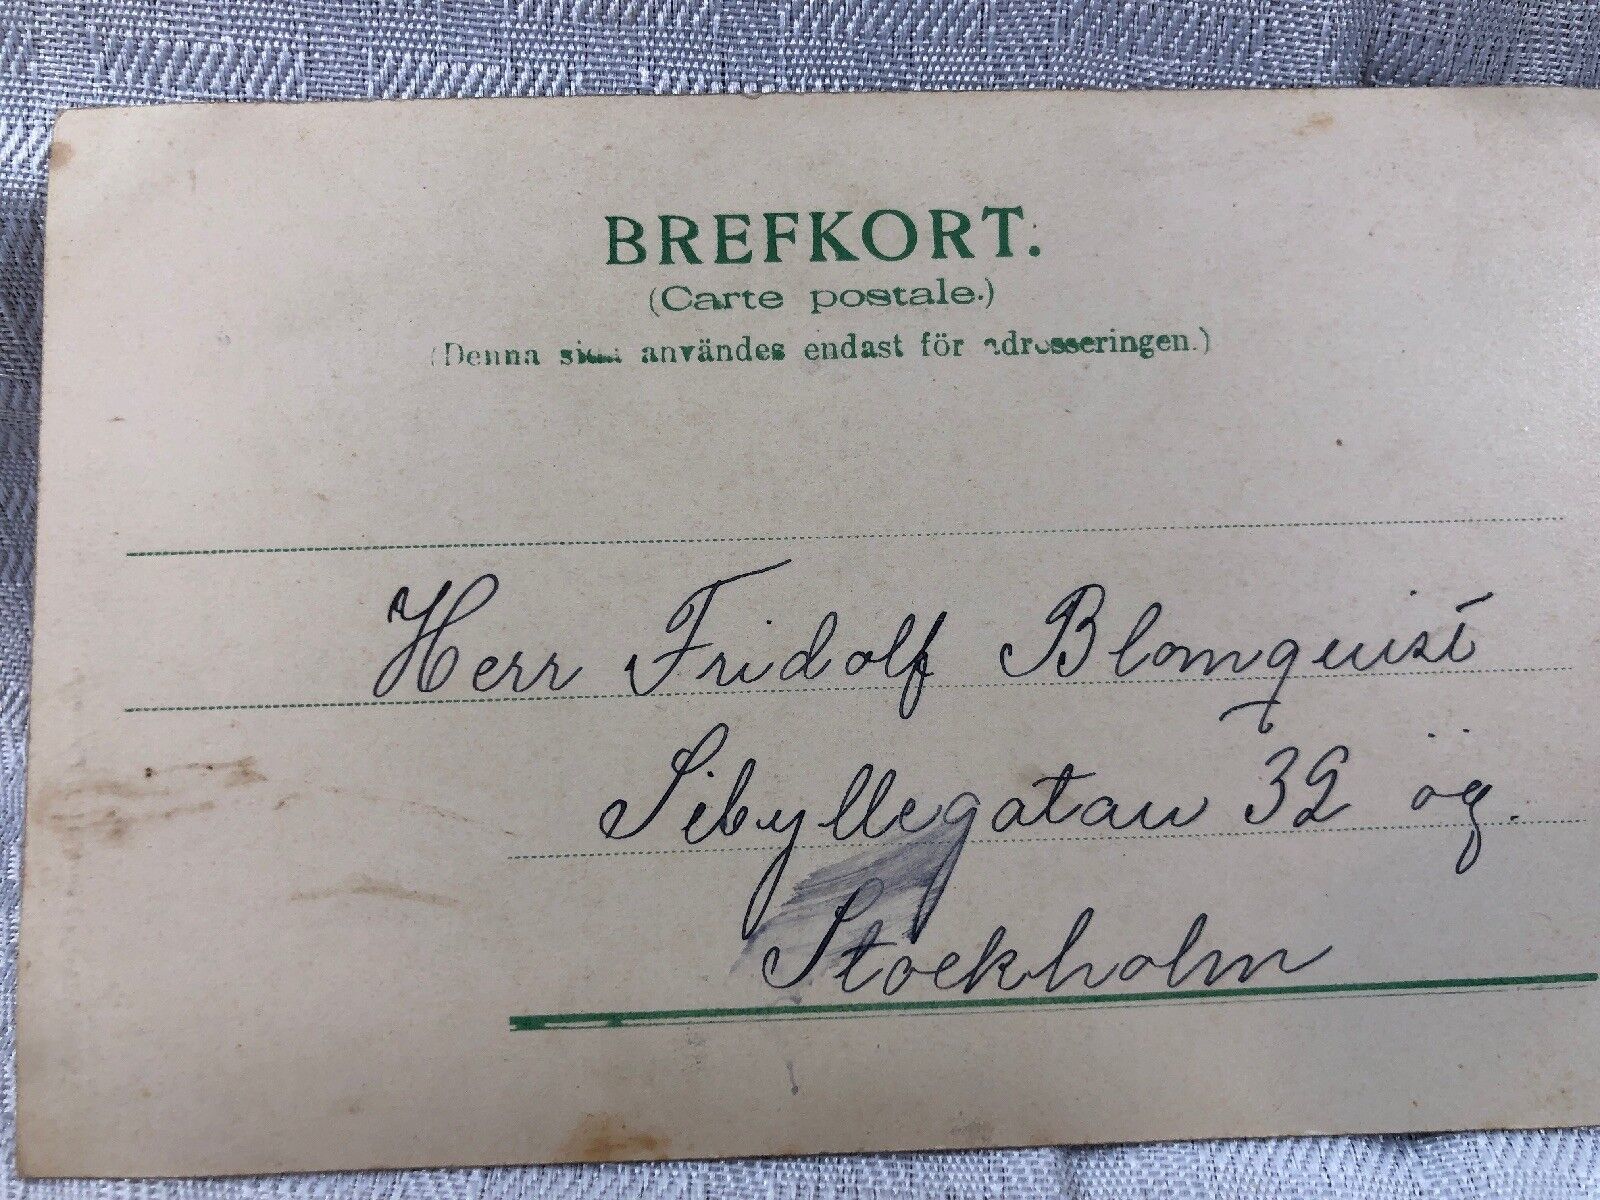 BREFKORT.
(Carte postale.)
(Denna sida användes endast för adresseringen.)
Herr Fridolf Blomquist
Sibyllegatan 32 ög.
Stockholm